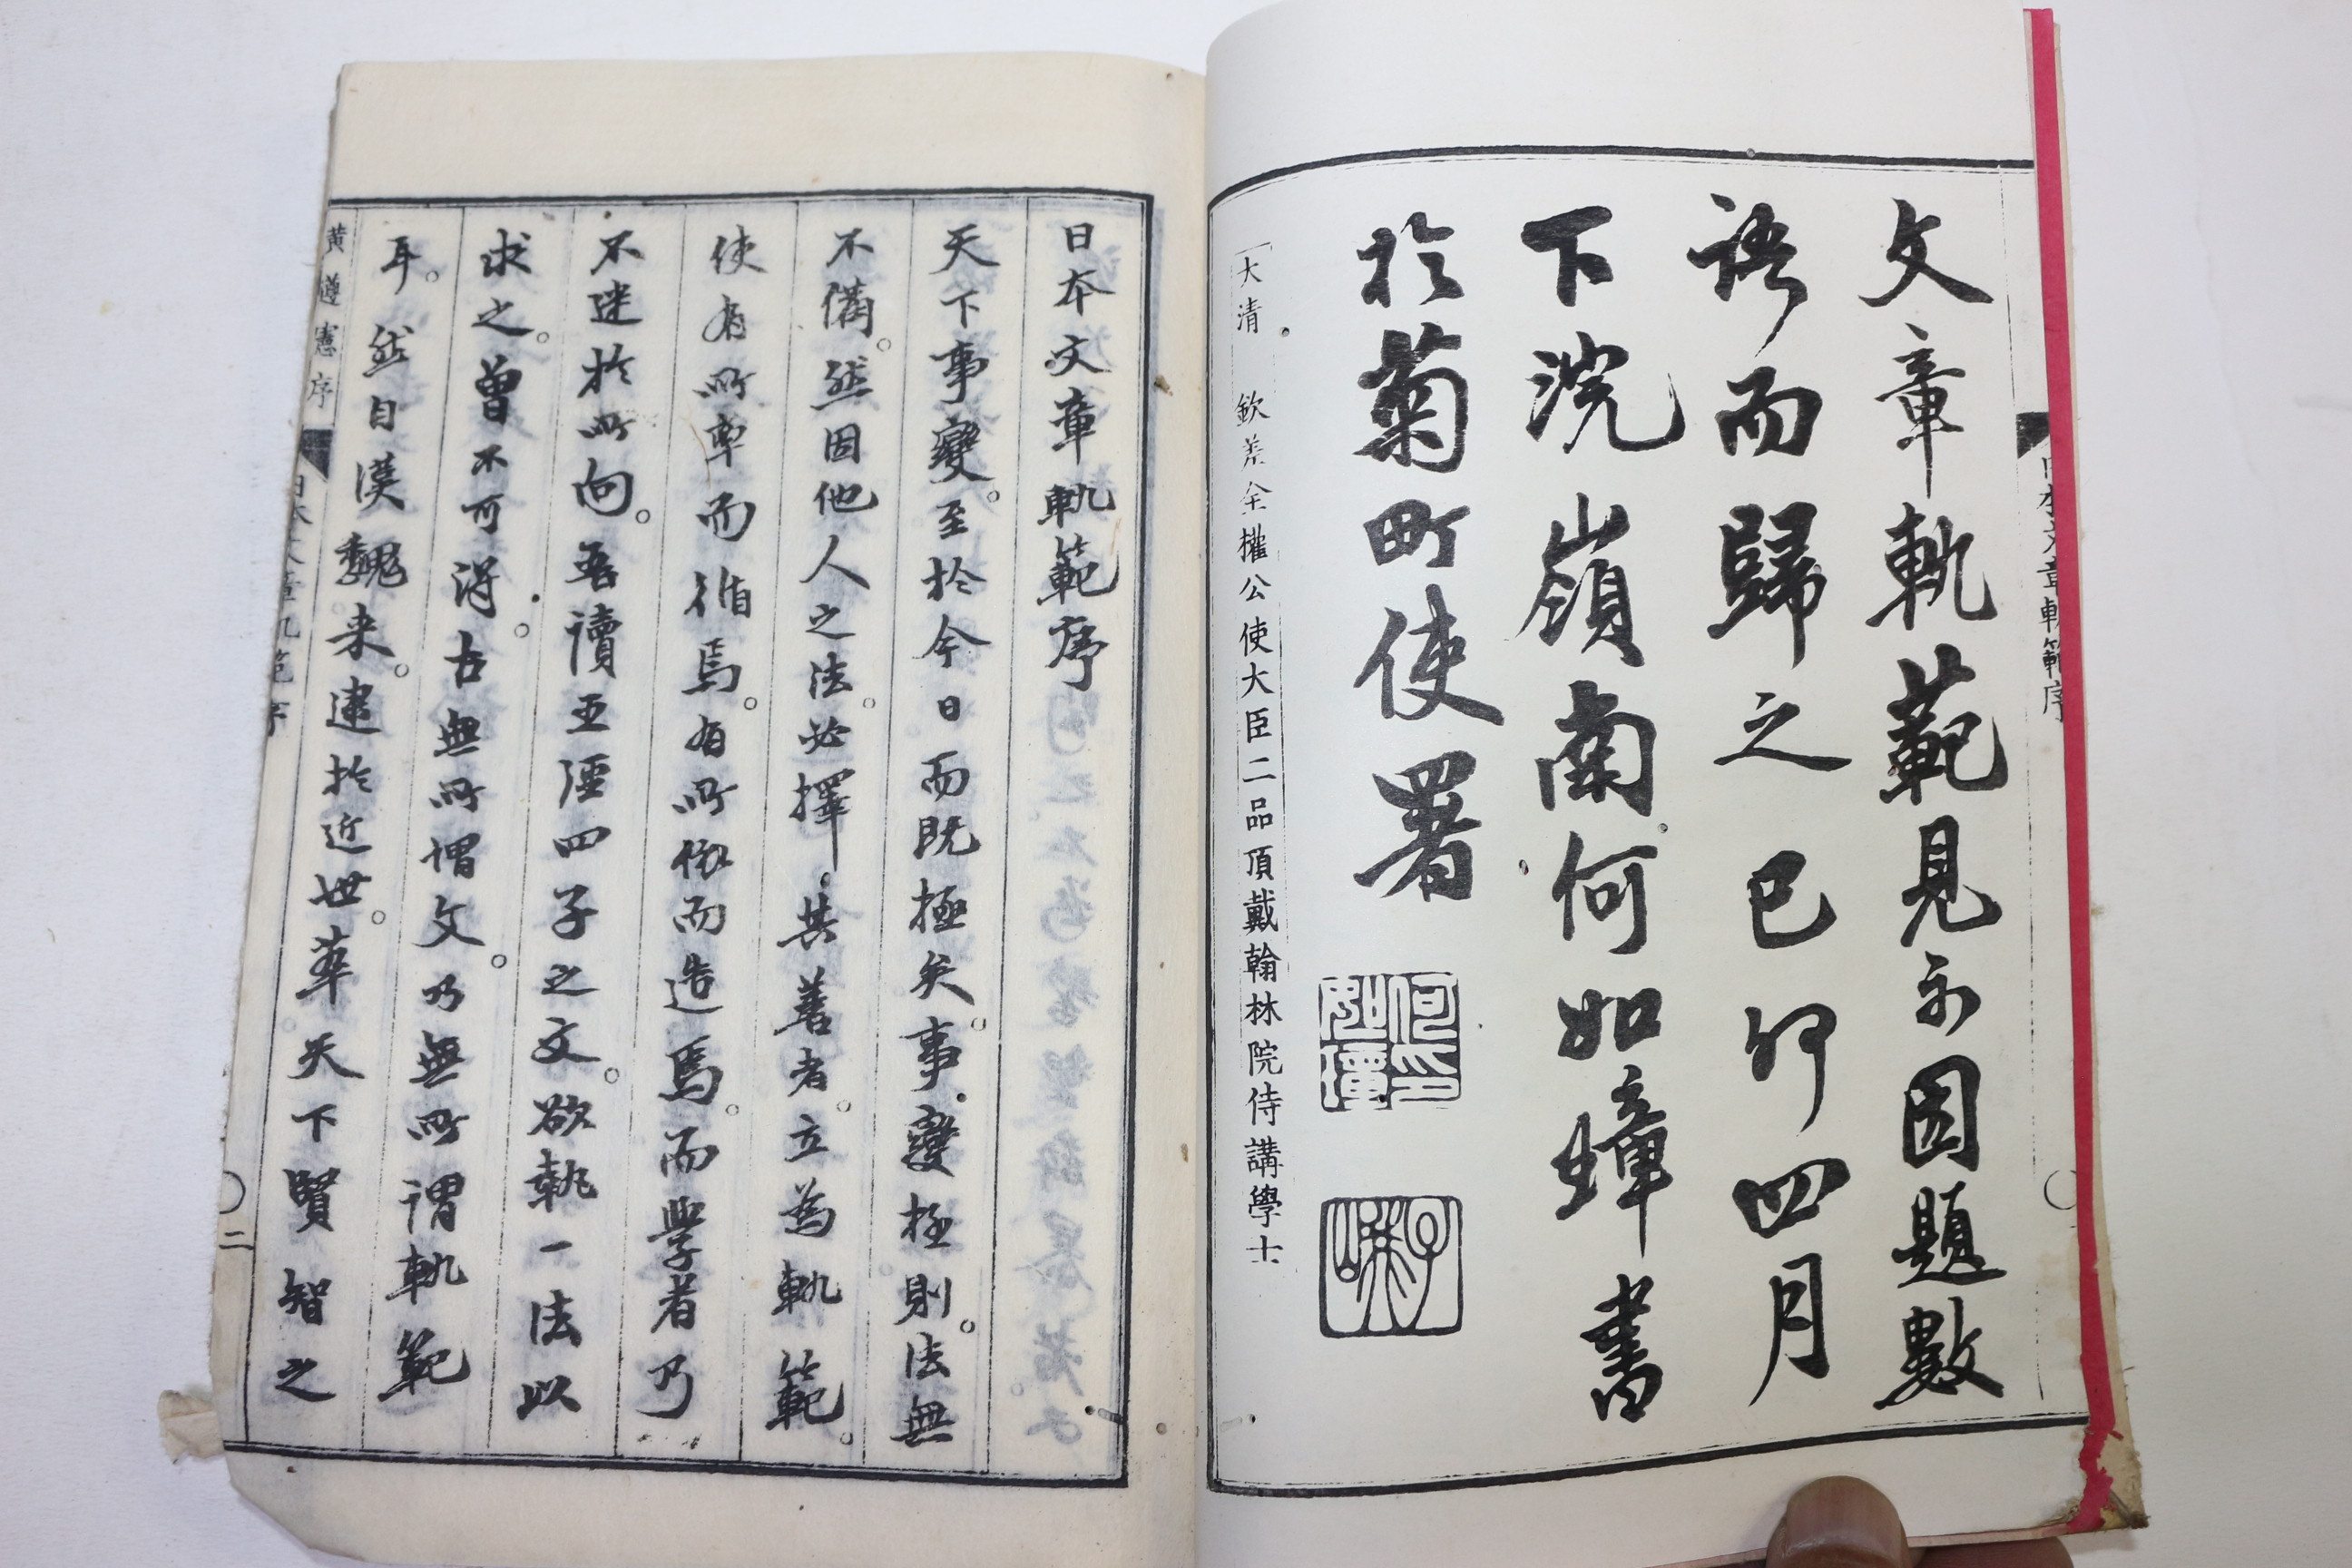 文章軌範見示因題數
語而歸之己卯四月
下浣嶺南何如璋書
於菊町使署
大清　欽差全權公使大臣二品頂戴翰林院侍講學士
日本文章軌範序
天下事變。至於今日而既極矣。事變極則。法無
不備。然因他人之法。必擇其善者。立為軌範。
使有所率而循焉。有所依而造焉。而學者乃
不迷於所向。吾讀五經四子之文。欲執一法以
求之。曾不可得。古無所謂文。乃無所謂軌範
耳。然自漢魏来。逮於近世。萃天下賢智之
黄遵憲序
二